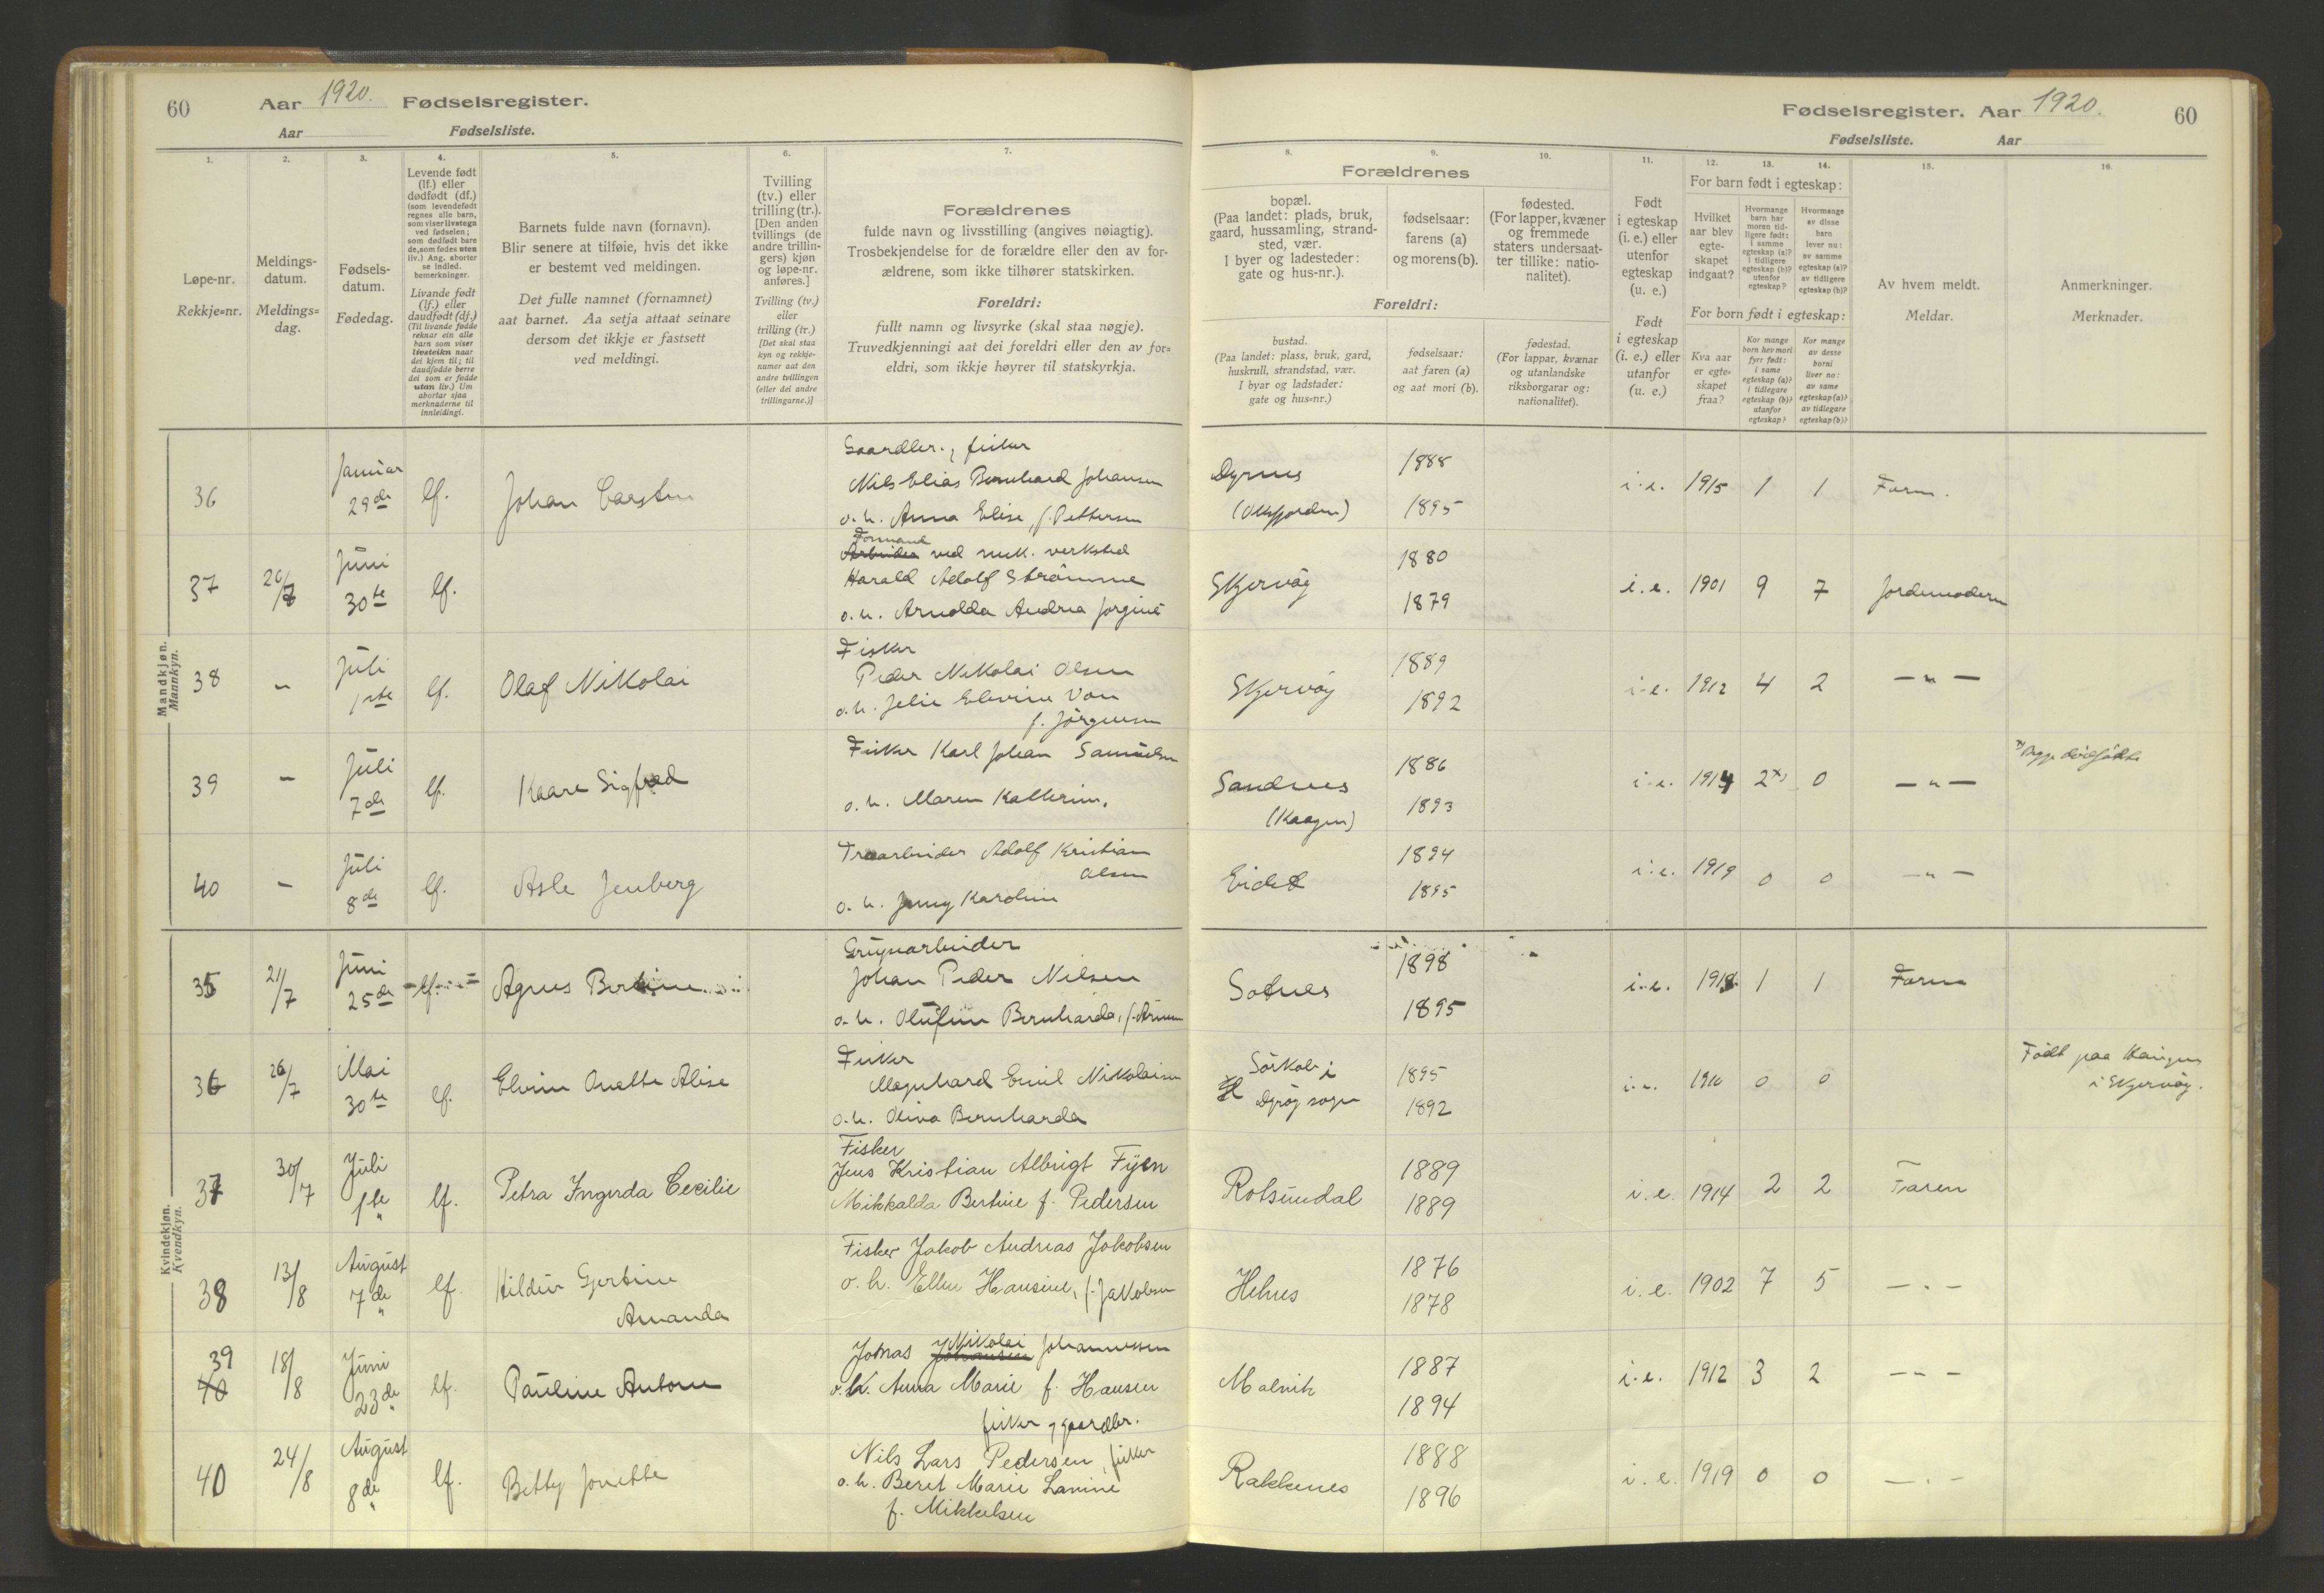 60
Aar 1920. Fødselsregister.
Aar
Fødselsliste.
1.
2.
3.
4.
5.
6.
7.
Løpe-nr.
Rekkje=nr.
Meldings-
datum.
Meldings=
dag.
Fødsels-
datum.
Fødedag.
Levende født
(lf.) eller
dødfødt (df.)
(som levendefødt
regnes alle barn,
som viser livstegn
ved fødselen;
som dødfødt bare
de, som fødes uten
liv.) Ang. aborter
se indled.
bemerkninger.
Livande født
(lf.) eller
daudfødt (df.)
(Til livande fødde
reknar ein alle
barn som viser
livsteikn naar
dei kjem til; til
daudfødde berre
dei som er fødde
utan liv.) Um
abortar sjaa
merknaderne til
innleidingi.
Barnets fulde navn (fornavn).
Blir senere at tilføie, hvis det ikke
er bestemt ved meldingen.
Det fulle namnet (fornamnet)
aat barnet. Aa setja attaat seinare
dersom det ikkje er fastsett
ved meldingi.
Tvilling
(tv.) eller
trilling (tr.).
[Den anden
tvillings (de
andre trillin-
gers) kjøn
og løpe-nr.
anføres.]
Tvilling (tv.)
eller
trilling (tr.)
[Det skal staa
kyn og rekkje-
numer aat den
andre tvillingen
(eller dei andre
trillingarne.)]
Forældrenes
fulde navn og livsstilling (angives nøiagtig).
Trosbekjendelse for de forældre eller den av for-
ældrene, som ikke tilhører statskirken.
Foreldri:
fullt namn og livsyrke (skal staa nøgje).
Truvedkjenningi aat dei foreldri eller den av for=
eldri, som ikkje høyrer til statskyrkja.
Fødselsregister. Aar 1920.
60
Fødselsliste.
Aar
8.
9.
10.
11.
12.
13.
14.
15.
16.
Forældrenes
bopæl.
(Paa landet: plads, bruk,
gaard, hussamling, strand-
sted, vær.
I byer og ladesteder:
gate og hus-nr.).
fødselsaar:
farens (a)
og morens (b).
fødested.
(For lapper, kvæner
og fremmede
staters undersaat-
ter tillike: natio-
nalitet).
Foreldri:
bustad.
(Paa landet: plass, bruk, gard,
huskrull, strandstad, vær.
I byar og ladstader:
gate og hus=nr.)
fødselsaar:
aat faren (a)
og aat mori (b).
fødestad.
(For lappar, kvænar
og utanlandske
riksborgarar og:
nationalitet).
Født
i egteskap
(i. e.) eller
utenfor
egteskap
(u. e.)
Født
i egteskap
(i. e.) eller
utanfor
(u. e.)
For barn født i egteskap:
Hvilket
aar blev
egte-
skapet
indgaat?
Hvormange
barn har
moren tid-
ligere født:
i samme
egteskap (a)?
i tidligere
egteskap (b)?
utenfor
egteskap?
Hvormange
av disse
barn
lever nu:
av samme
egteskap (a)?
av tidligere
egteskap (b)?
For born født i egteskap:
Kva aar
er egte-
skapet
fraa?
Kor mange
born hev mori
fyrr født:
i same
egteskap (a)?
i tidlegare
egteskap (b)?
utanfor
egteskap?
Kor mange
av desse
borni
liver no:
av same
egteskap (a)?
av tidlegare
egteskap (b)?
Av hvem meldt.
Meldar.
Anmerkninger.
Merknader.
Mandkjøn.
Mannkyn.
36 Januar 29de lf. Johan Carsten
Gaardbr., fisker
Nils Elias Bernhard Johansen
o. h. Anna Elise, f. Pettersen
1888 1895 i.e. 1915 1 1 Faren.
37 26/7 Juni 30te lf.
Formand
Arbeider ved mek. verksted
Harald Adolf Strømme
o. h. Arnolda Andrea Jørgine
Skjervøy 1880 1879 i.e. 1901 9 7 Jordemoderen
38 – Juli 1ste lf. Olaf Nikolai
Fisker
Peder Nikolai Olsen
f. Jørgensen
Skjervøy 1889 1892 i.e. 1912 4 2 – " –
39 – Juli 7de lf. Kaare Sigfred
Fisker Karl Johan Samuelsen
o. h. Maren Kathrine.
Sandnes (Kaagen) 1886 1893 i.e. 1914 2x) 0 – " –
x) Begge dødfødte
40 – Juli 8de lf. Asle Jenberg
Adolf Kristian Olsen
o. h. Jenny Karoline
Eidet 1894 1895 i.e. 1919 0 0 – " –
Kvindekjøn.
Kvendkyn.
35 21/7 Juni 25de lf. Agnes Bertine
Johan Peder Nilsen
o. h. Olufine Bernharda,
Sotnes 1898 1895 i.e. 1918 1 1 Faren
36 26/7 Mai 30te lf. Elvine Anette Alise
Fisker
Magnhard Emil Nikolaisen
o. h. Oliva Bernharda
1895 1892 i.e. 0 0
Født paa
i Skjervøy.
37 30/7 Juli 1ste lf. Petra Ingerda Cecilie
Fisker
Jens Kristian Albrigt Fyen
Mikkalda Bertine f. Pedersen
Rotsundal 1889 1889 i. e. 1914 2 2 Faren
38 13/8 August 7de lf. Hildur Gjertine Amanda
Fisker Jakob Andreas Jakobsen
o. h. Ellen Hansine, f. Jakobsen
1876 1878 i. e. 1902 7 5 – " –
39 40 18/8 Juni 23de lf. Pauline Antone
Jonas Johansen Nikolai Johannessen
o. h. Anna Marie f. Hansen
fisker og gaardbr.
1887 1894 i.e. 1912 3 2 – " –
40 24/8 August 8de lf. Betty Jonette
Nils Lars Pedersen, fisker
o. h. Beret Marie Lavine
f. Mikkelsen
Rakkenes 1888 1896 i. e. 1919 0 0 – " –